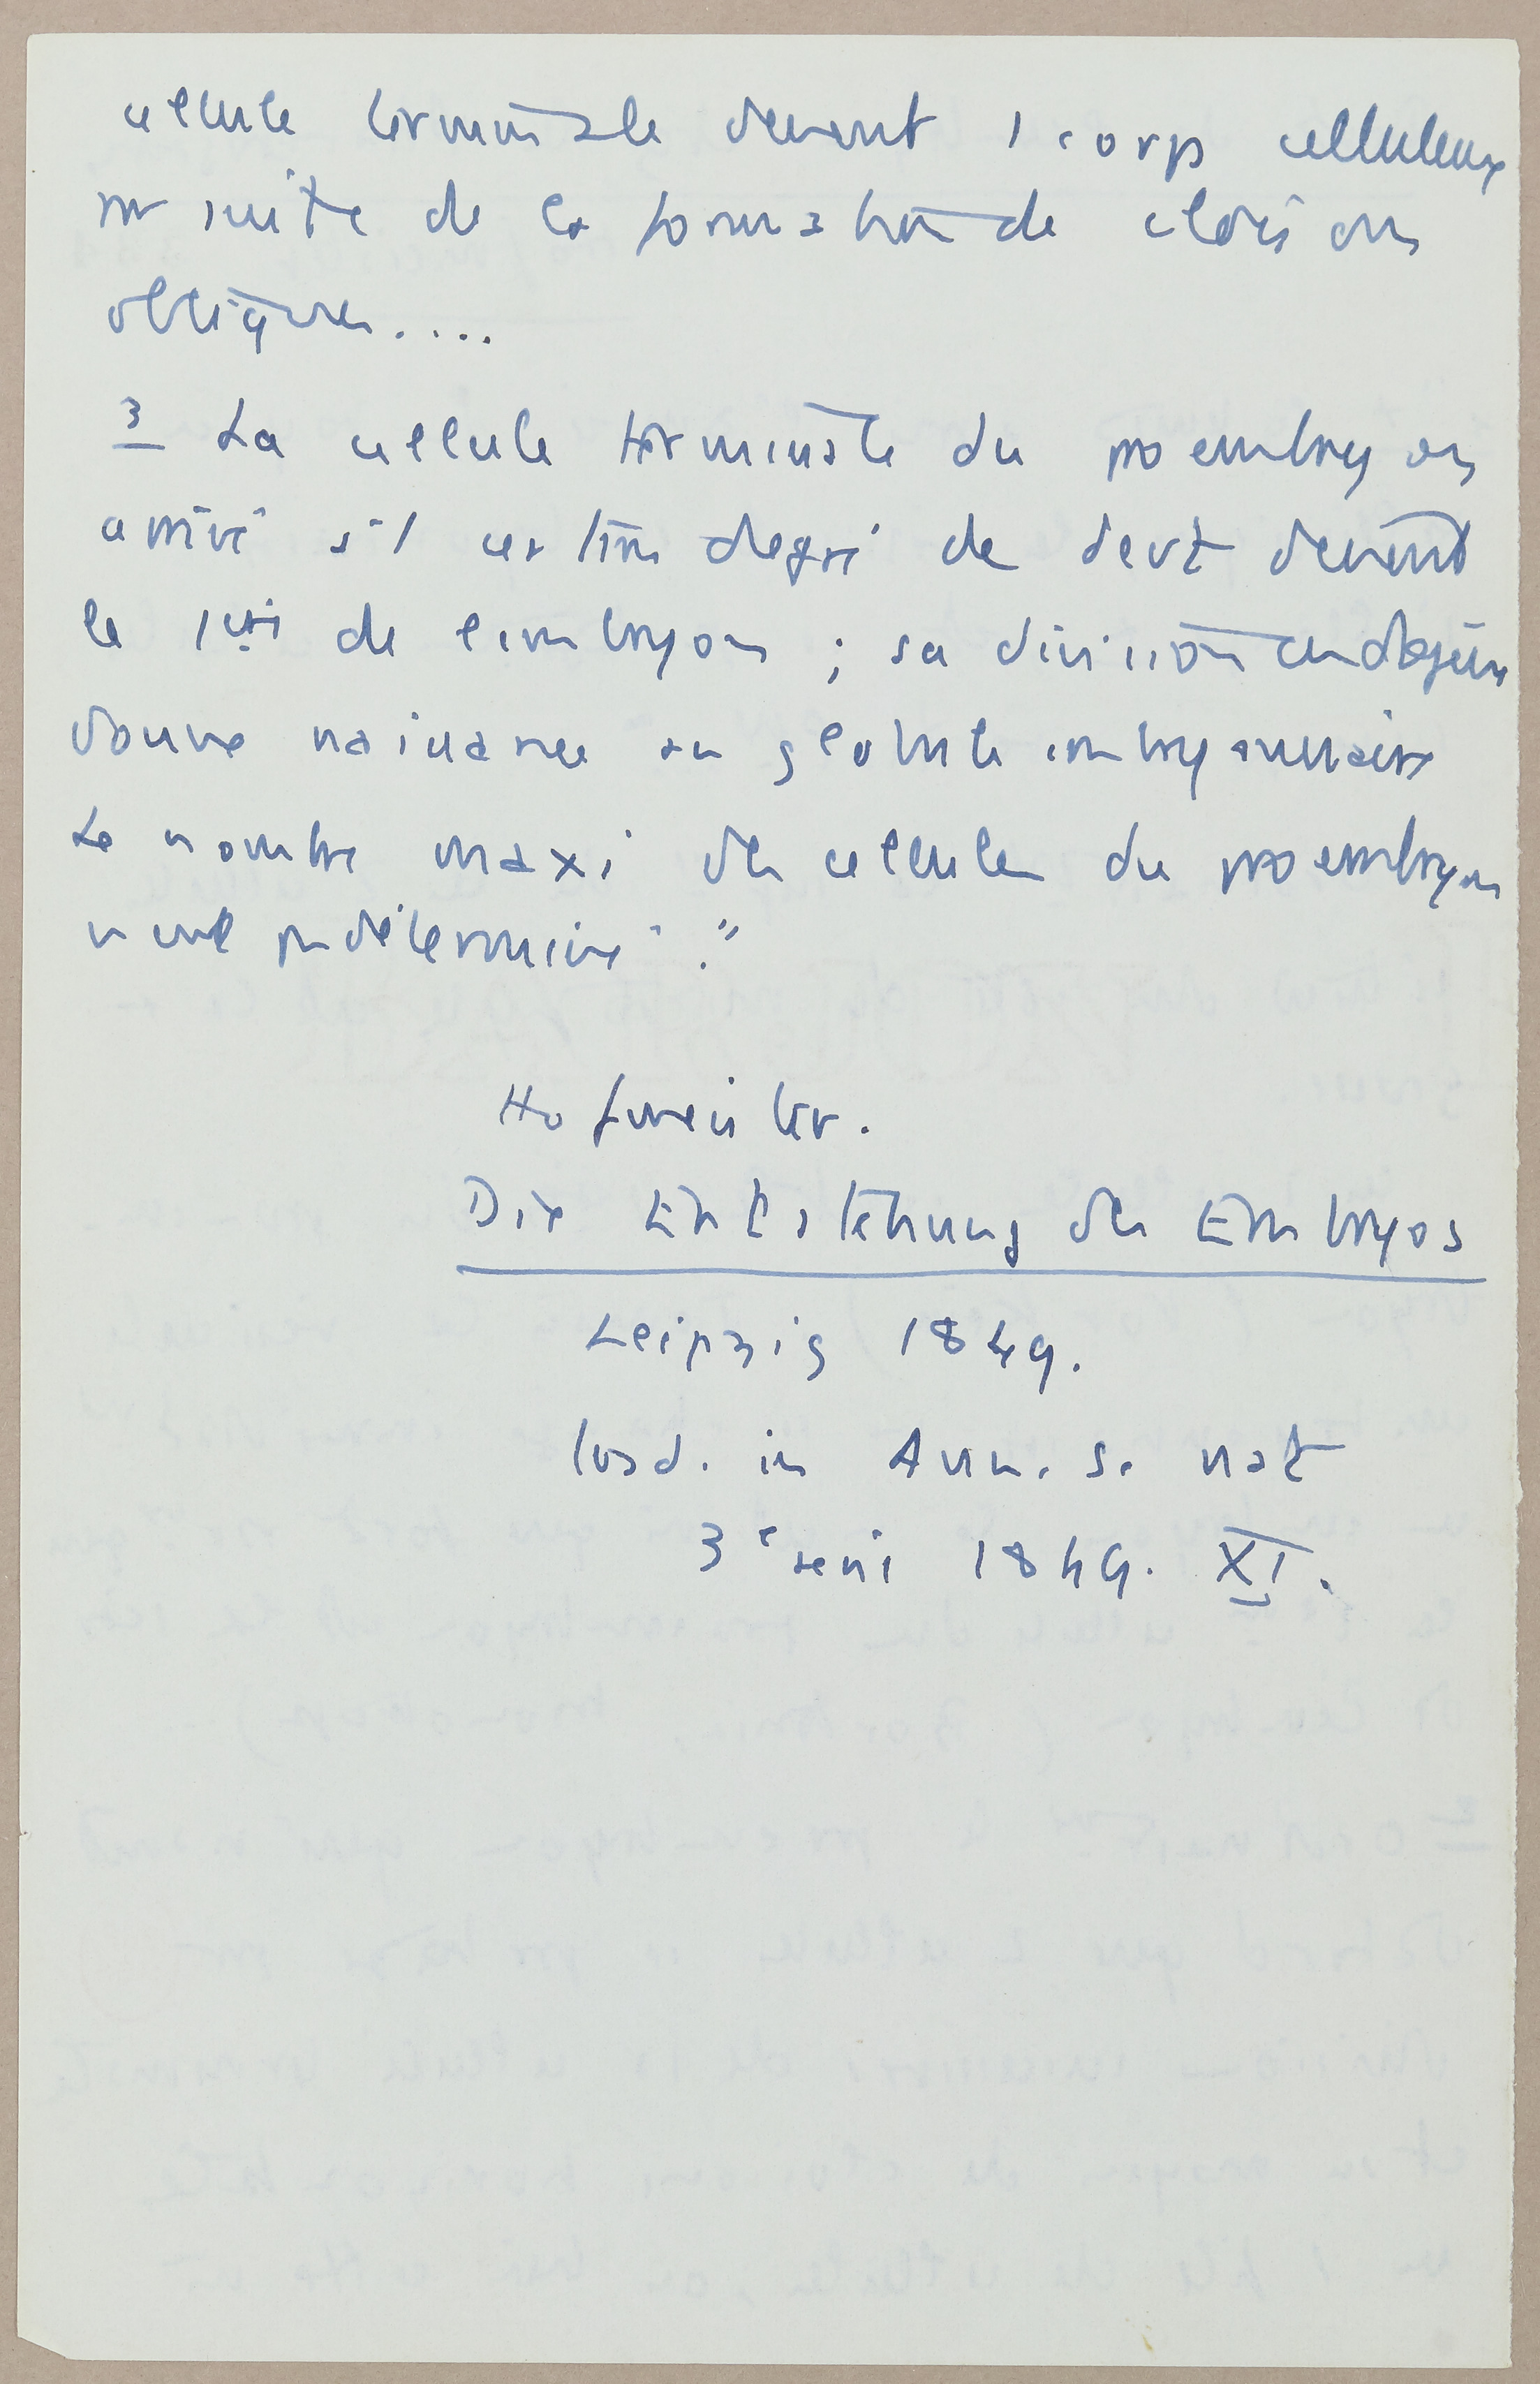 cellule terminale devient 1 corps celluleux
par suite de la formation de cloisons
obliques....
3 La cellule terminale du proembryon
arrivé à 1 certain degré de devt devient
la 1ère de l'embryon ; sa division endogène
donne naissance au globule embryonnaire
Le nombre maxi des cellules du proembryon
n'est pas déterminé."
Hofmeister.
Die Entstehung des Embryos
Leipzig 1849.
trad. in Ann. Sc. nat
3e serie 1849. XI.